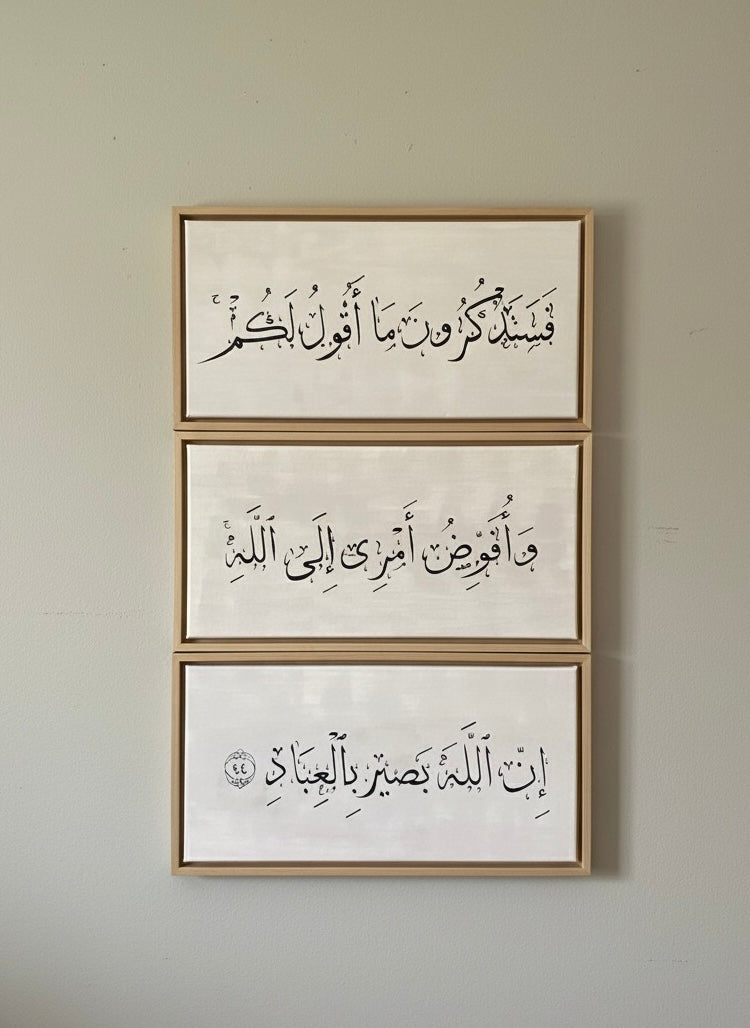 فَسَتَذْكُرُونَ مَا أَقُولُ لَكُمْ ۚ
وَأُفَوِّضُ أَمْرِى إِلَى ٱللَّهِ ۚ
إِنَّ ٱللَّهَ بَصِيرٌۢ بِٱلْعِبَادِ ٤٤